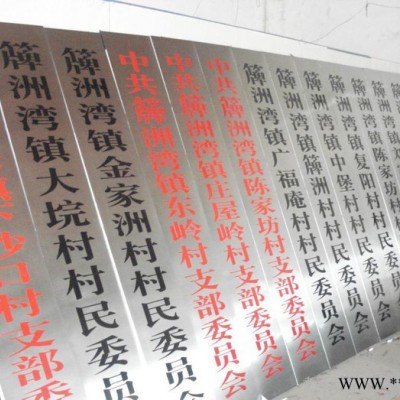 沙口村支部委员
簰洲湾镇大垸村村民委员
簰洲湾镇金家洲村村民委员会
中共簰洲湾镇东岭村支部委员会
中共簰洲湾镇庄屋岭村支部委员会
中共簰洲湾镇陈家坊村支部委员会
簰洲湾镇广福庵村村民委员会
簰洲湾镇簰洲村村民委员会
簰洲湾镇中堡村村民委员会
簰洲湾镇复阳村村民委员会
簰洲湾镇陈家坊村村民委员会
WWW.**